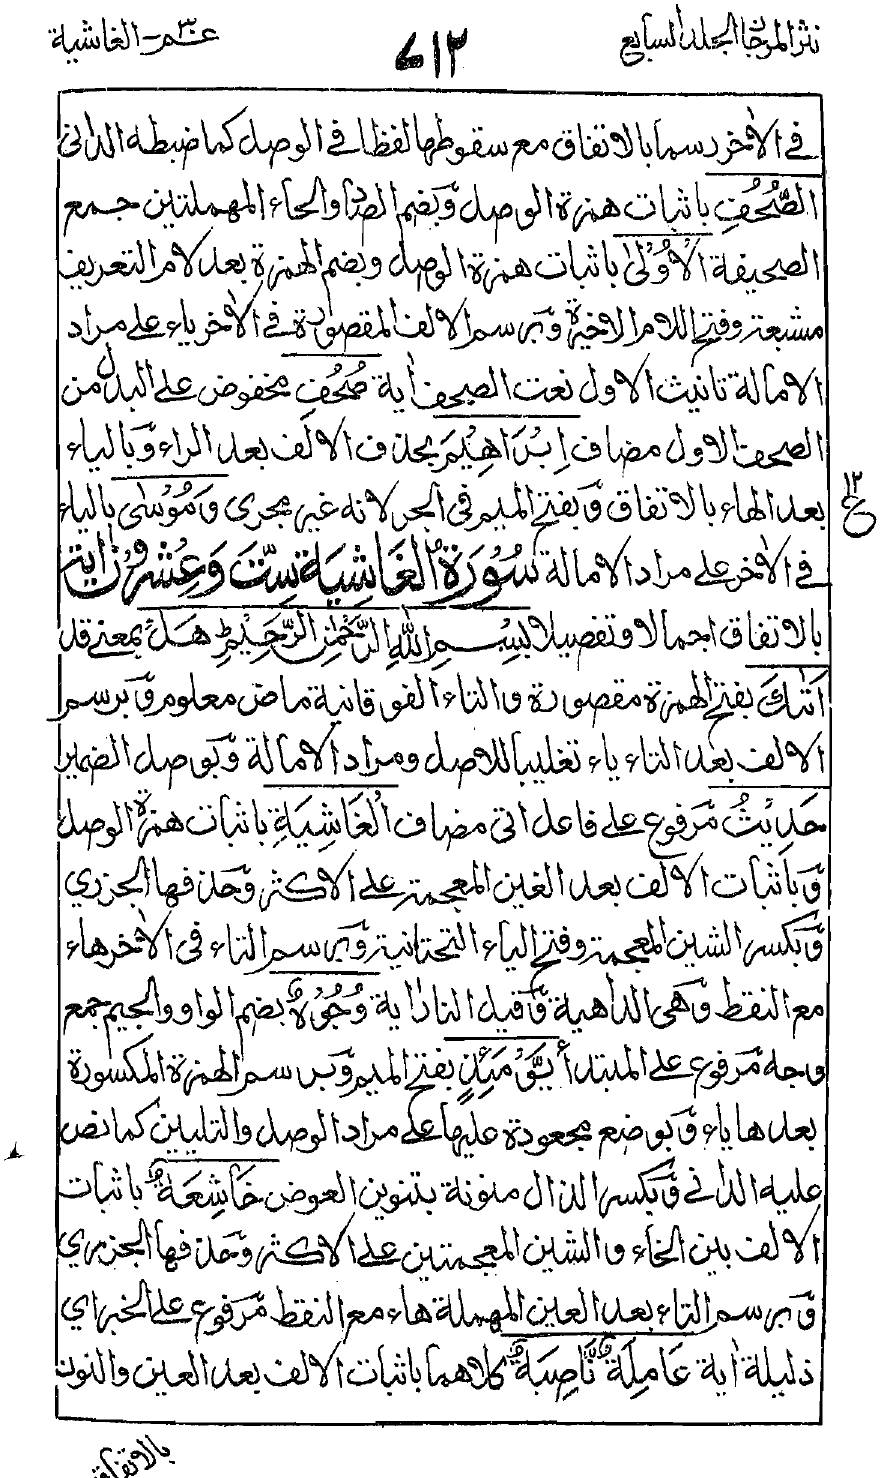 نثر المرجان الجلد السابع
٧١٢
عم-الغاشية
فى الاٰخر رسما بالاتفاق مع سقوطها لفظا فى الوصل كما ضبطه الدانى
الصُّحُفِ باثبات همزة الوصل وَبضم الصاد والحاء المهملتين جمع
الصحيفة الْاُوْلىٰ باثبات همزة الوصل وبضم الهمزة بعد لام التعريف
مشبعة وفتح اللام الاخيرة وَبرسم الالف المقصورة فى الاٰخر ياء على مراد
الامالة تانيث الاول نعت الصحف اٰية صُحُفِ مخفوض على البدل من
الصحف الاول مضاف اِبْرَاهِيْمَ بحذف الالف بعد الراء وَبالياء
بعد الهاء بالاتفاق وَبفتح الميم فى الجر لانه غير مجرى وَمُوْسٰى بالياء
١٢
ع
فى الاٰخر على مراد الامالة سُوْرَةُ الْغَاشِيَةِ سِتٌّ وَعِشْرُوْنَ اٰية
بالاتفاق اجمالا وتفصيلا بِسْمِ اللّٰهِ الرَّحْمٰنِ الرَّحِيْمِ هَلْ بمعنى قد
اَتٰىكَ بفتح الهمزة مقصورة والتاء الفوقانية ماض معلوم وَبرسم
الالف بعد التاء ياء تغليبا للاصل ومراد الامالة وَبوصل الضمير
حَدِيْثُ مرفوع على فاعل اتى مضاف الْغَاشِيَةِ باثبات همزة الوصل
وَباثبات الالف بعد الغين المعجمة على الاكثر وَحذفها الجزرى
وَبكسر الشين المعجمة وفتح الياء التحتانية وَبرسم التاء فى الاٰخر هاء
مع النقط وَهى الداهية وَقيل النار اٰية وُجُوْهٌ بضم الواو والجيم جمع
وجه مرفوع على المبتدأ يَّوْمَئِذٍ بفتح الميم وَبرسم الهمزة المكسورة
بعدها ياء وَبوضع مجعودة عليها على مراد الوصل والتليين كما نص
عليه الدانى وَبكسر الذال منونة بتنوين العوض خَاشِعَةٌ باثبات
الالف بين الخاء والشين المعجمتين على الاكثر وَحذفها الجزرى
وَبرسم التاء بعد العين المهملة هاء مع النقط مرفوع على الخبر اى
ذليلة اٰية عَامِلَةٌ نَّاصِبَةٌ كلاهما باثبات الالف بعد العين والنون
بالاتفاق